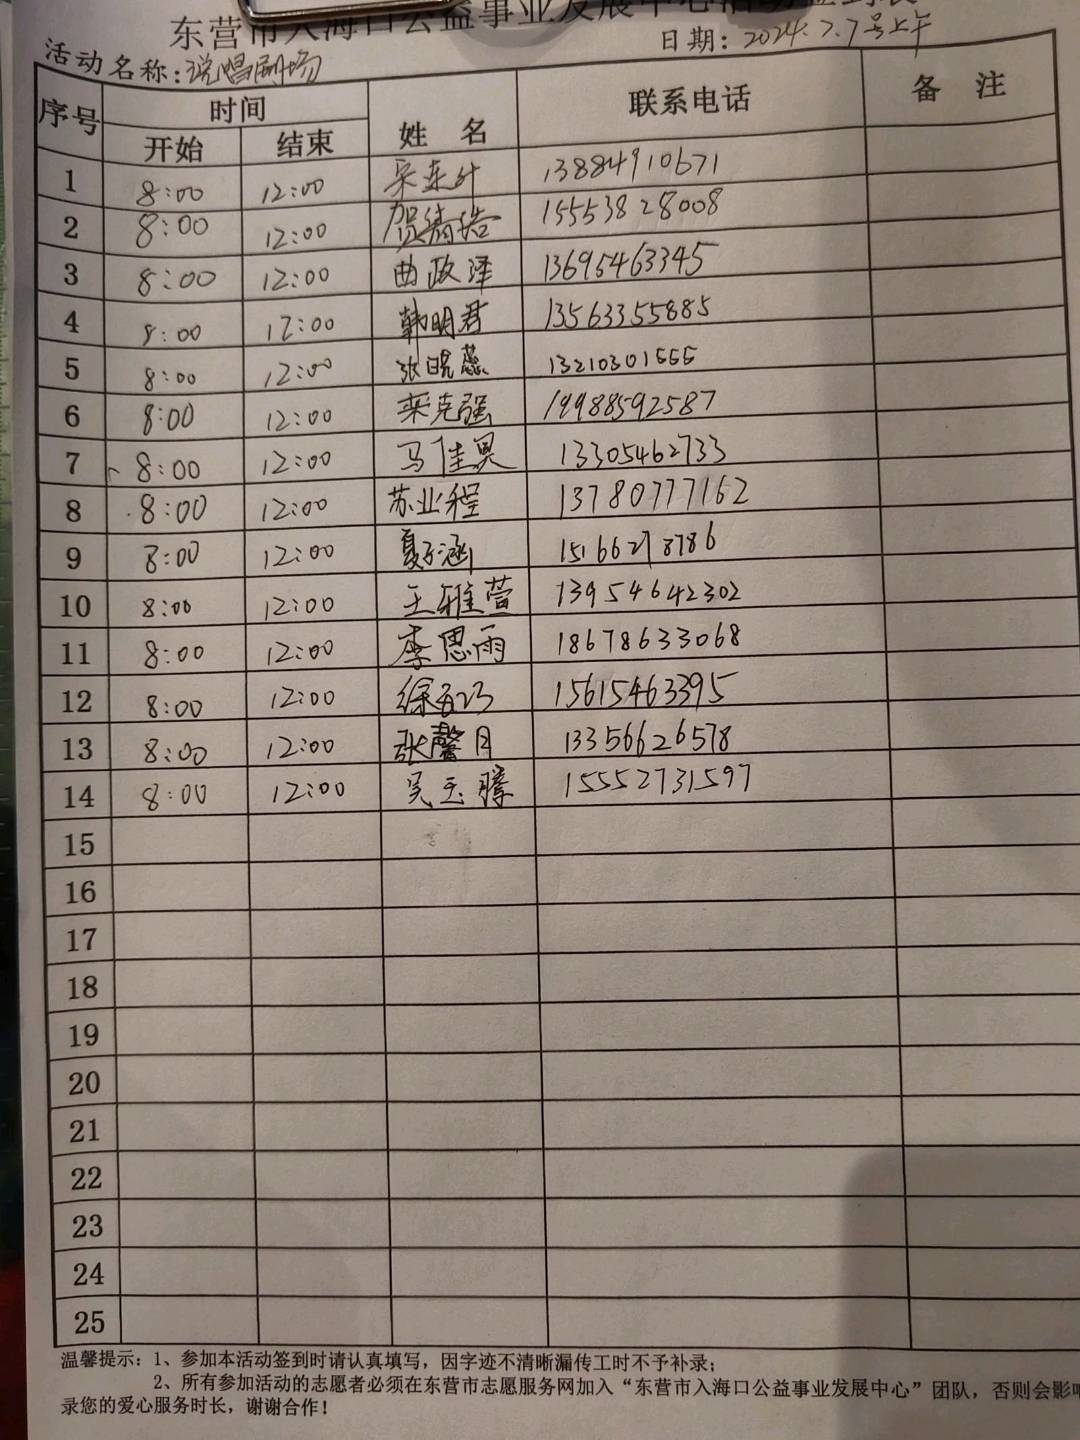 东营市入海口公益事业发展中心活动签到表
活动名称:说唱剧场 日期:2024.7.7号上午
序号 时间 姓 名 联系电话 备 注
开始 结束
1 8:00 12:00 13884910671
2 8:00 12:00 贺清皓 15553828008
3 8:00 12:00 曲政泽 13695463345
4 8:00 12:00 韩明君 13563355885
5 8:00 12:00 张晓蕊 13210301555
6 8:00 12:00 栾克强 19988592587
7 8:00 12:00 马佳昊 13305462733
8 8:00 12:00 苏业程 13780777162
9 8:00 12:00 夏子涵 15166278786
10 8:00 12:00 王雅萱 13954642302
11 8:00 12:00 李思雨 18678633068
12 8:00 12:00 15615463395
13 8:00 12:00 张馨月 13356626578
14 8:00 12:00 吴玉滕 15552731597
15
16
17
18
19
20
21
22
23
24
25
温馨提示:1、参加本活动签到时请认真填写,因字迹不清晰漏传工时不予补录;
2、所有参加活动的志愿者必须在东营市志愿服务网加入“东营市入海口公益事业发展中心”团队,否则会影响
录您的爱心服务时长,谢谢合作!